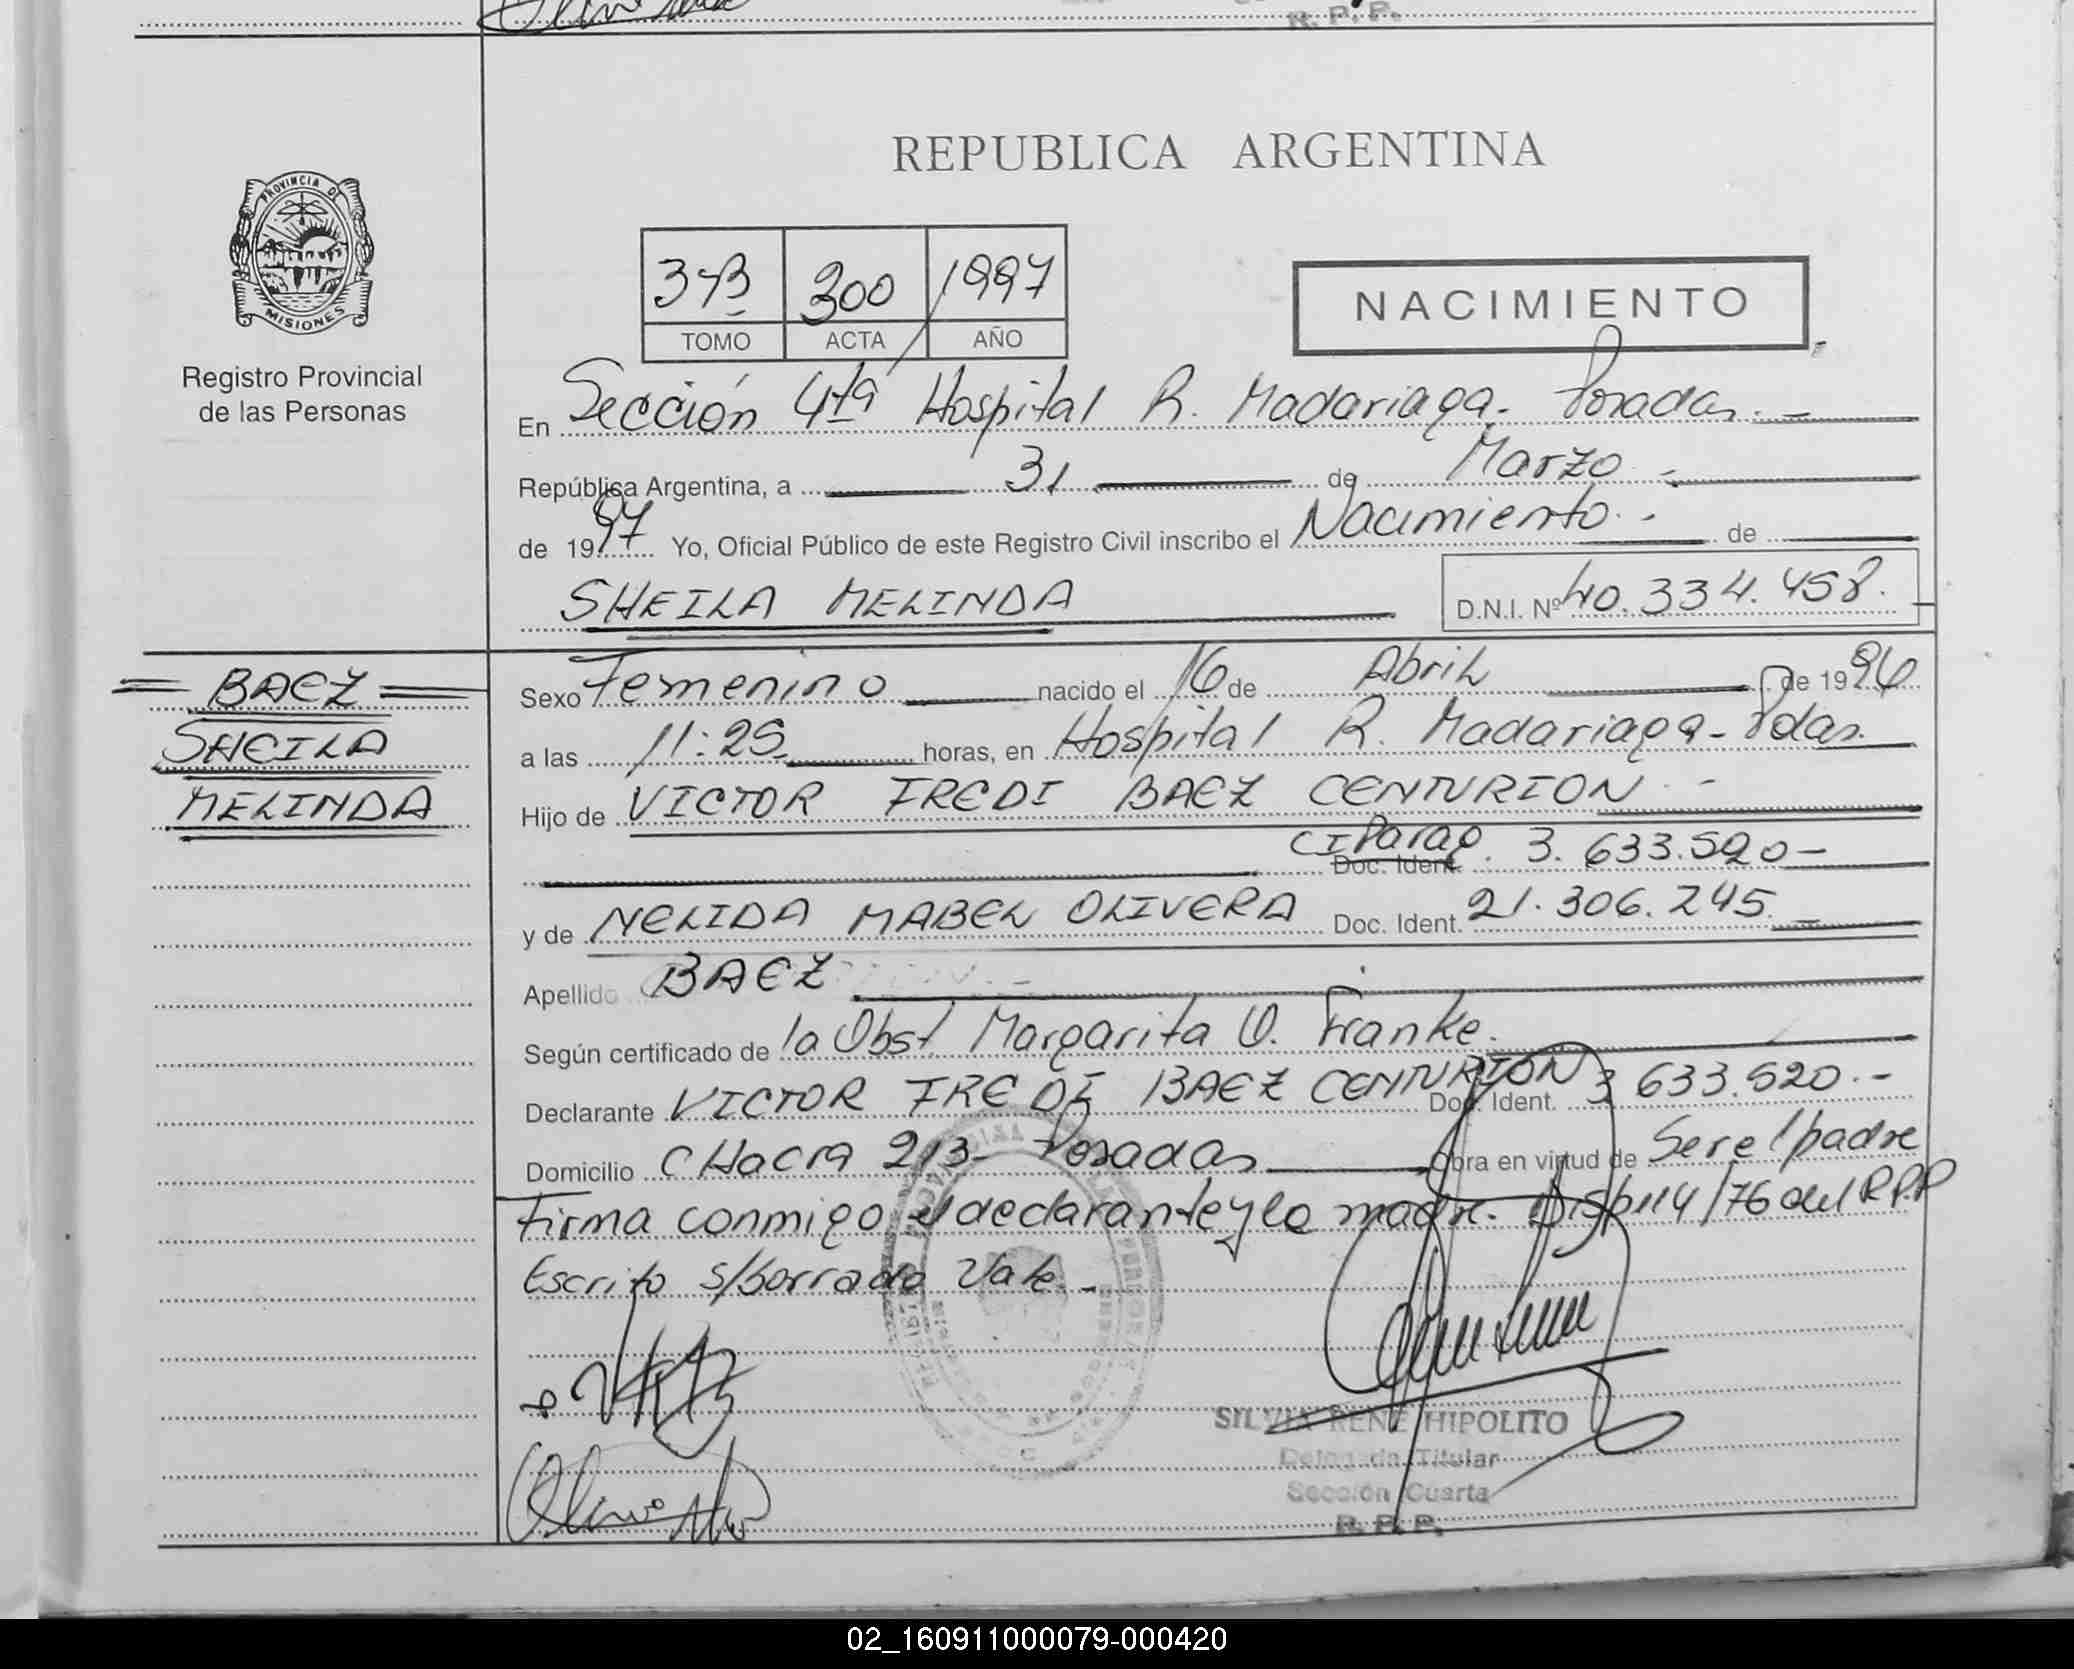 R. P. P.
REPUBLICA ARGENTINA
PROVINCIA DE
MISIONES
Registro Provincial
de las Personas
373 300 1997
TOMO ACTA AÑO
NACIMIENTO
En Sección 4ta Hospital R. Madariaga. Posadas.-
República Argentina, a 31 de Marzo.-
de 1997 Yo, Oficial Público de este Registro Civil inscribo el Nacimiento.- de
SHEILA MELINDA D.N.I. Nº 40.334.458.
BAEZ
SHEILA
MELINDA
Sexo Femenino nacido el 16 de Abril de 1996
a las 11:25 horas, en Hospital R. Madariaga - Pdas.
Hijo de VICTOR FREDI BAEZ CENTURION.-
CI Parag. Doc. Ident. 3.633.520-
y de NELIDA MABEL OLIVERA Doc. Ident. 21.306.245.-
Apellido BAEZ
Según certificado de la Obst. Margarita O. Franke.
Declarante VICTOR FREDI BAEZ CENTURION Doc. Ident. 3 633.520.-
Domicilio CHacra 213- Posadas Obra en virtud de Ser el padre
Firma conmigo el declarante y la madre. Disp 114/76 del R.P.P
Escrito s/borrado Vale.-
SILVIA RENE HIPOLITO
Delegada Titular
Sección Cuarta
R. P. P.
02_160911000079-000420